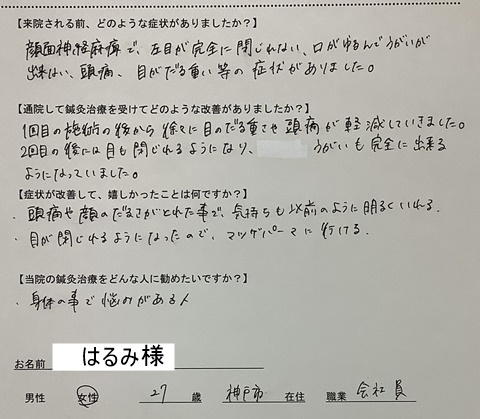 【来院される前、どのような症状がありましたか？】
顔面神経麻痺で、左目が完全に閉じれない、口がゆるんでうがいが
出来ない、頭痛、目がだる重い等の症状がありました。
【通院して鍼灸治療を受けてどのような改善がありましたか？】
1回目の施術の後から徐々に目のだる重さや頭痛が軽減していきました。
2回目の後には目も閉じれるようになり、 うがいも完全に出来る
ようになっていました。
【症状が改善して、嬉しかったことは何ですか？】
・頭痛や顔のだるさがとれた事で、気持ちも以前のように明るくいれる。
・目が閉じれるようになったので、マツゲパーマに行ける。
【当院の鍼灸治療をどんな人に勧めたいですか？】
・身体の事で悩みがある人
お名前 はるみ様
男性 女性 27 歳 神戸市 在住 職業 会社員